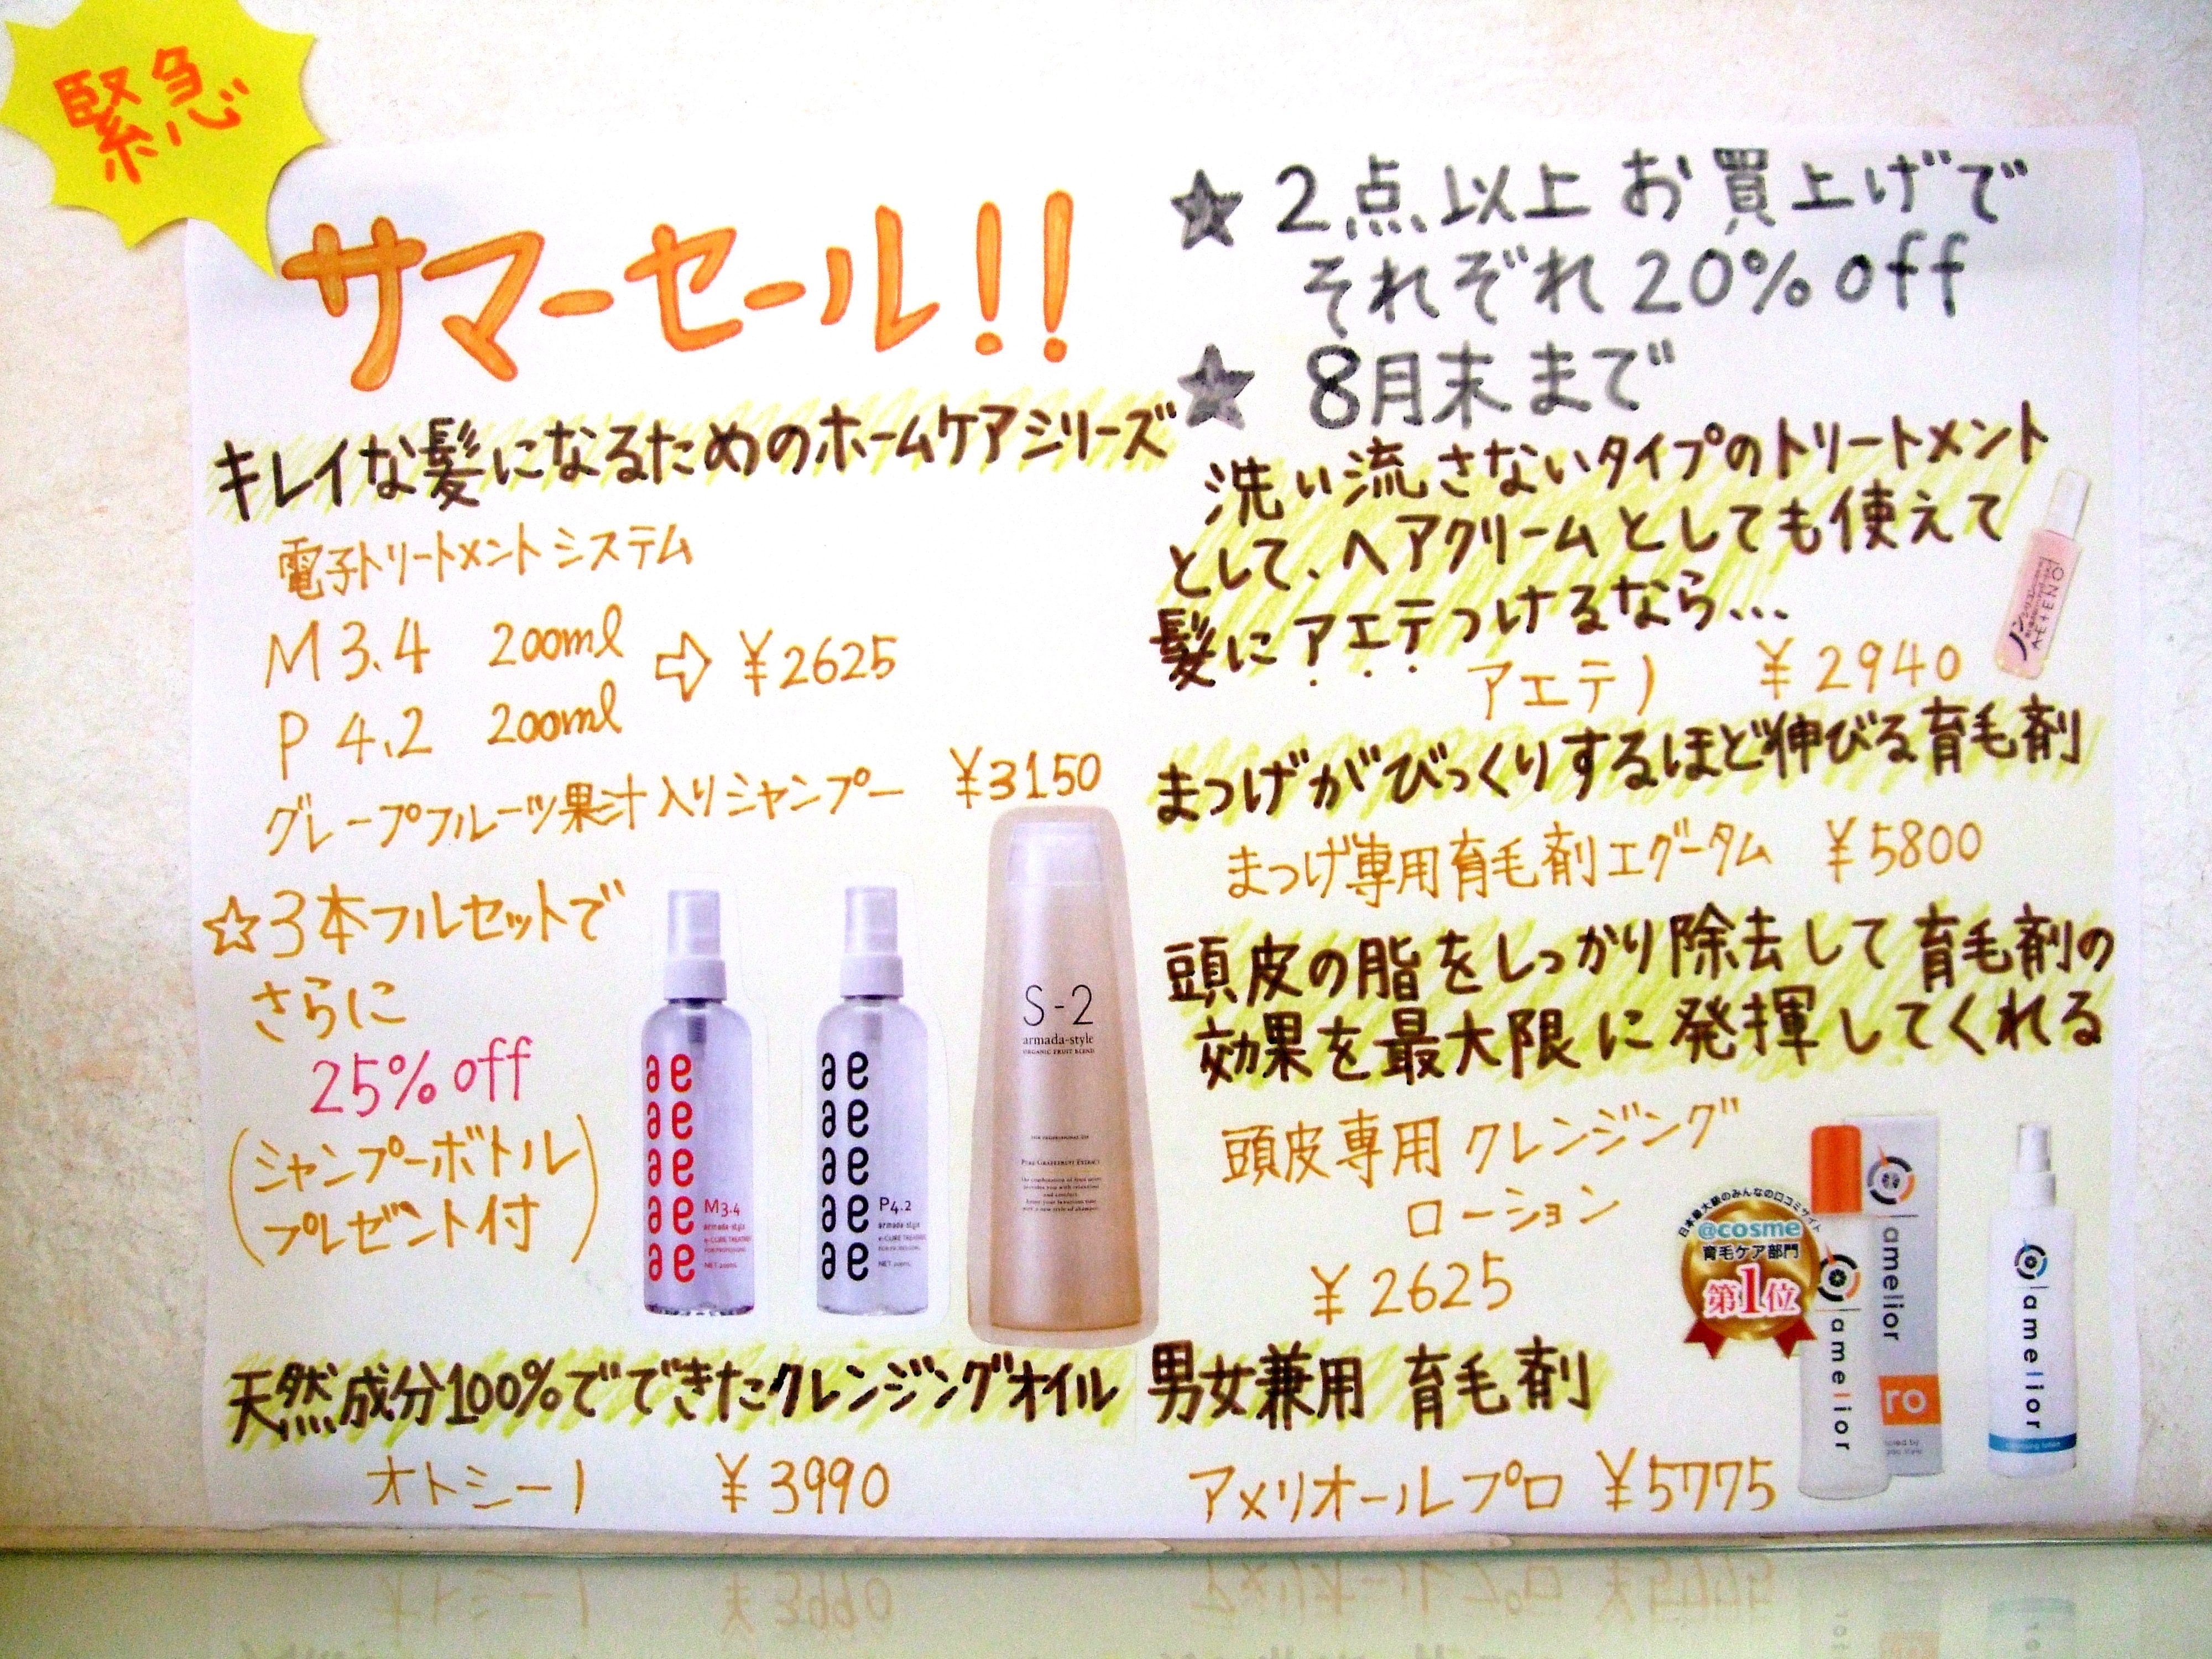 緊急
サマーセール!!
キレイな髪になるためのホームケアシリーズ
電子トリートメントシステム
M 3.4 200ml
P 4.2 200ml
⇨ ¥2625
グレープフルーツ果汁入りシャンプー ¥3150
☆3本フルセットで
さらに
25% off
(シャンプーボトル
プレゼント付)
ae
ae
ae
ae
ae
M3.4
armada-style
e-CURE TREATMENT
ae
ae
ae
ae
ae
P4.2
armada-style
e-CURE TREATMENT
S-2
armada-style
ORGANIC FRUIT BLEND
PURE GRAPEFRUIT EXTRACT
天然成分100%でできたクレンジングオイル
オトシーノ ¥3990
★ 2点以上お買上げで
それぞれ20% off
★ 8月末まで
洗い流さないタイプのトリートメント
として、ヘアクリームとしても使えて
髪にアエテつけるなら...
アエテノ ¥2940
AETENO
まつげがびっくりするほど伸びる育毛剤
まつげ専用育毛剤エグータム ¥5800
頭皮の脂をしっかり除去して育毛剤の
効果を最大限に発揮してくれる
頭皮専用クレンジング
ローション
¥2625
日本最大級のみんなの口コミサイト
@cosme
育毛ケア部門
第1位
amelior
amelior
ro
amelior
男女兼用 育毛剤
アメリオールプロ ¥5775